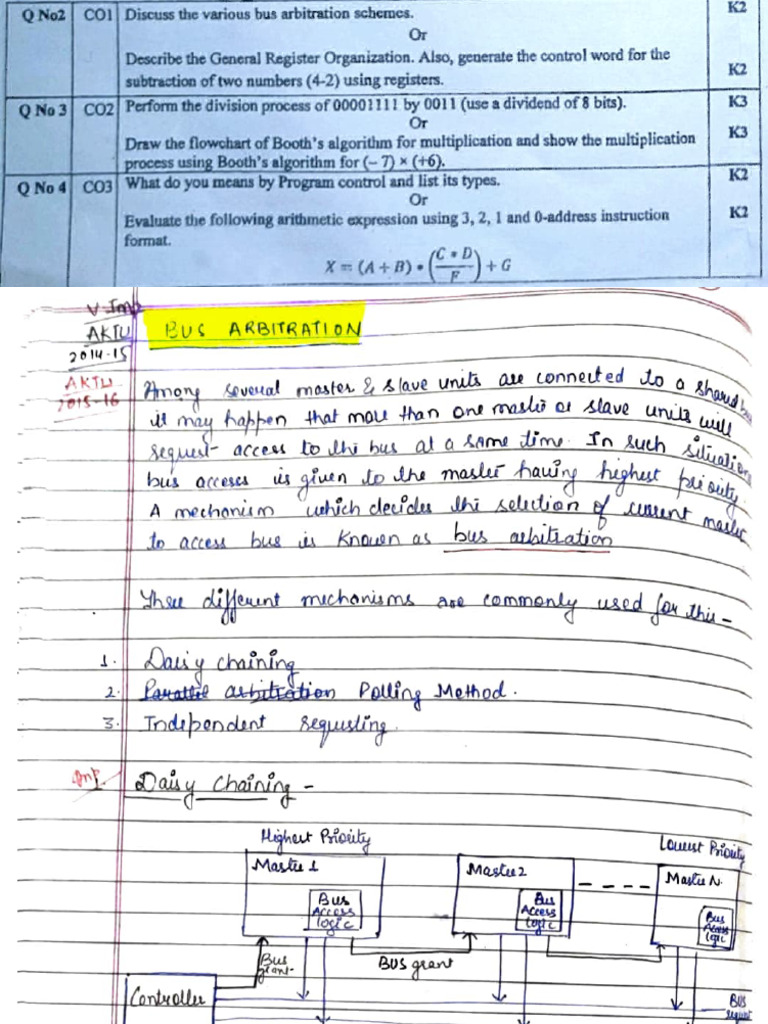 Q No2 CO1 Discuss the various bus arbitration schemes. K2
Or
Describe the General Register Organization. Also, generate the control word for the
subtraction of two numbers (4-2) using registers. K2
Q No 3 CO2 Perform the division process of 00001111 by 0011 (use a dividend of 8 bits). K3
Or
Draw the flowchart of Booth's algorithm for multiplication and show the multiplication K3
process using Booth's algorithm for (– 7) × (+6).
Q No 4 CO3 What do you means by Program control and list its types. K2
Or
Evaluate the following arithmetic expression using 3, 2, 1 and 0-address instruction K2
format.
X = (A + B) * (C * D / F) + G
V. Imp
AKTU
2014-15
BUS ARBITRATION
AKTU
2015-16
Among several master & slave units are connected to a shared bus
it may happen that more than one master or slave units will
request access to the bus at a same time. In such situation
bus acceses is given to the master having highest priority.
A mechanism which decides the selection of current master
to access bus is known as bus arbitration
Three different mechanisms are commonly used for this -
1. Daisy chaining
2. Parallel arbitration Polling Method.
3. Independent requsting.
Imp
Daisy Chaining -
Highest Priority
Lowest Priority
Master 1
Master 2
Master N.
Bus Access logic
Bus Access logic
Bus Access logic
Bus grant
BUS grant
Controller
BUS request